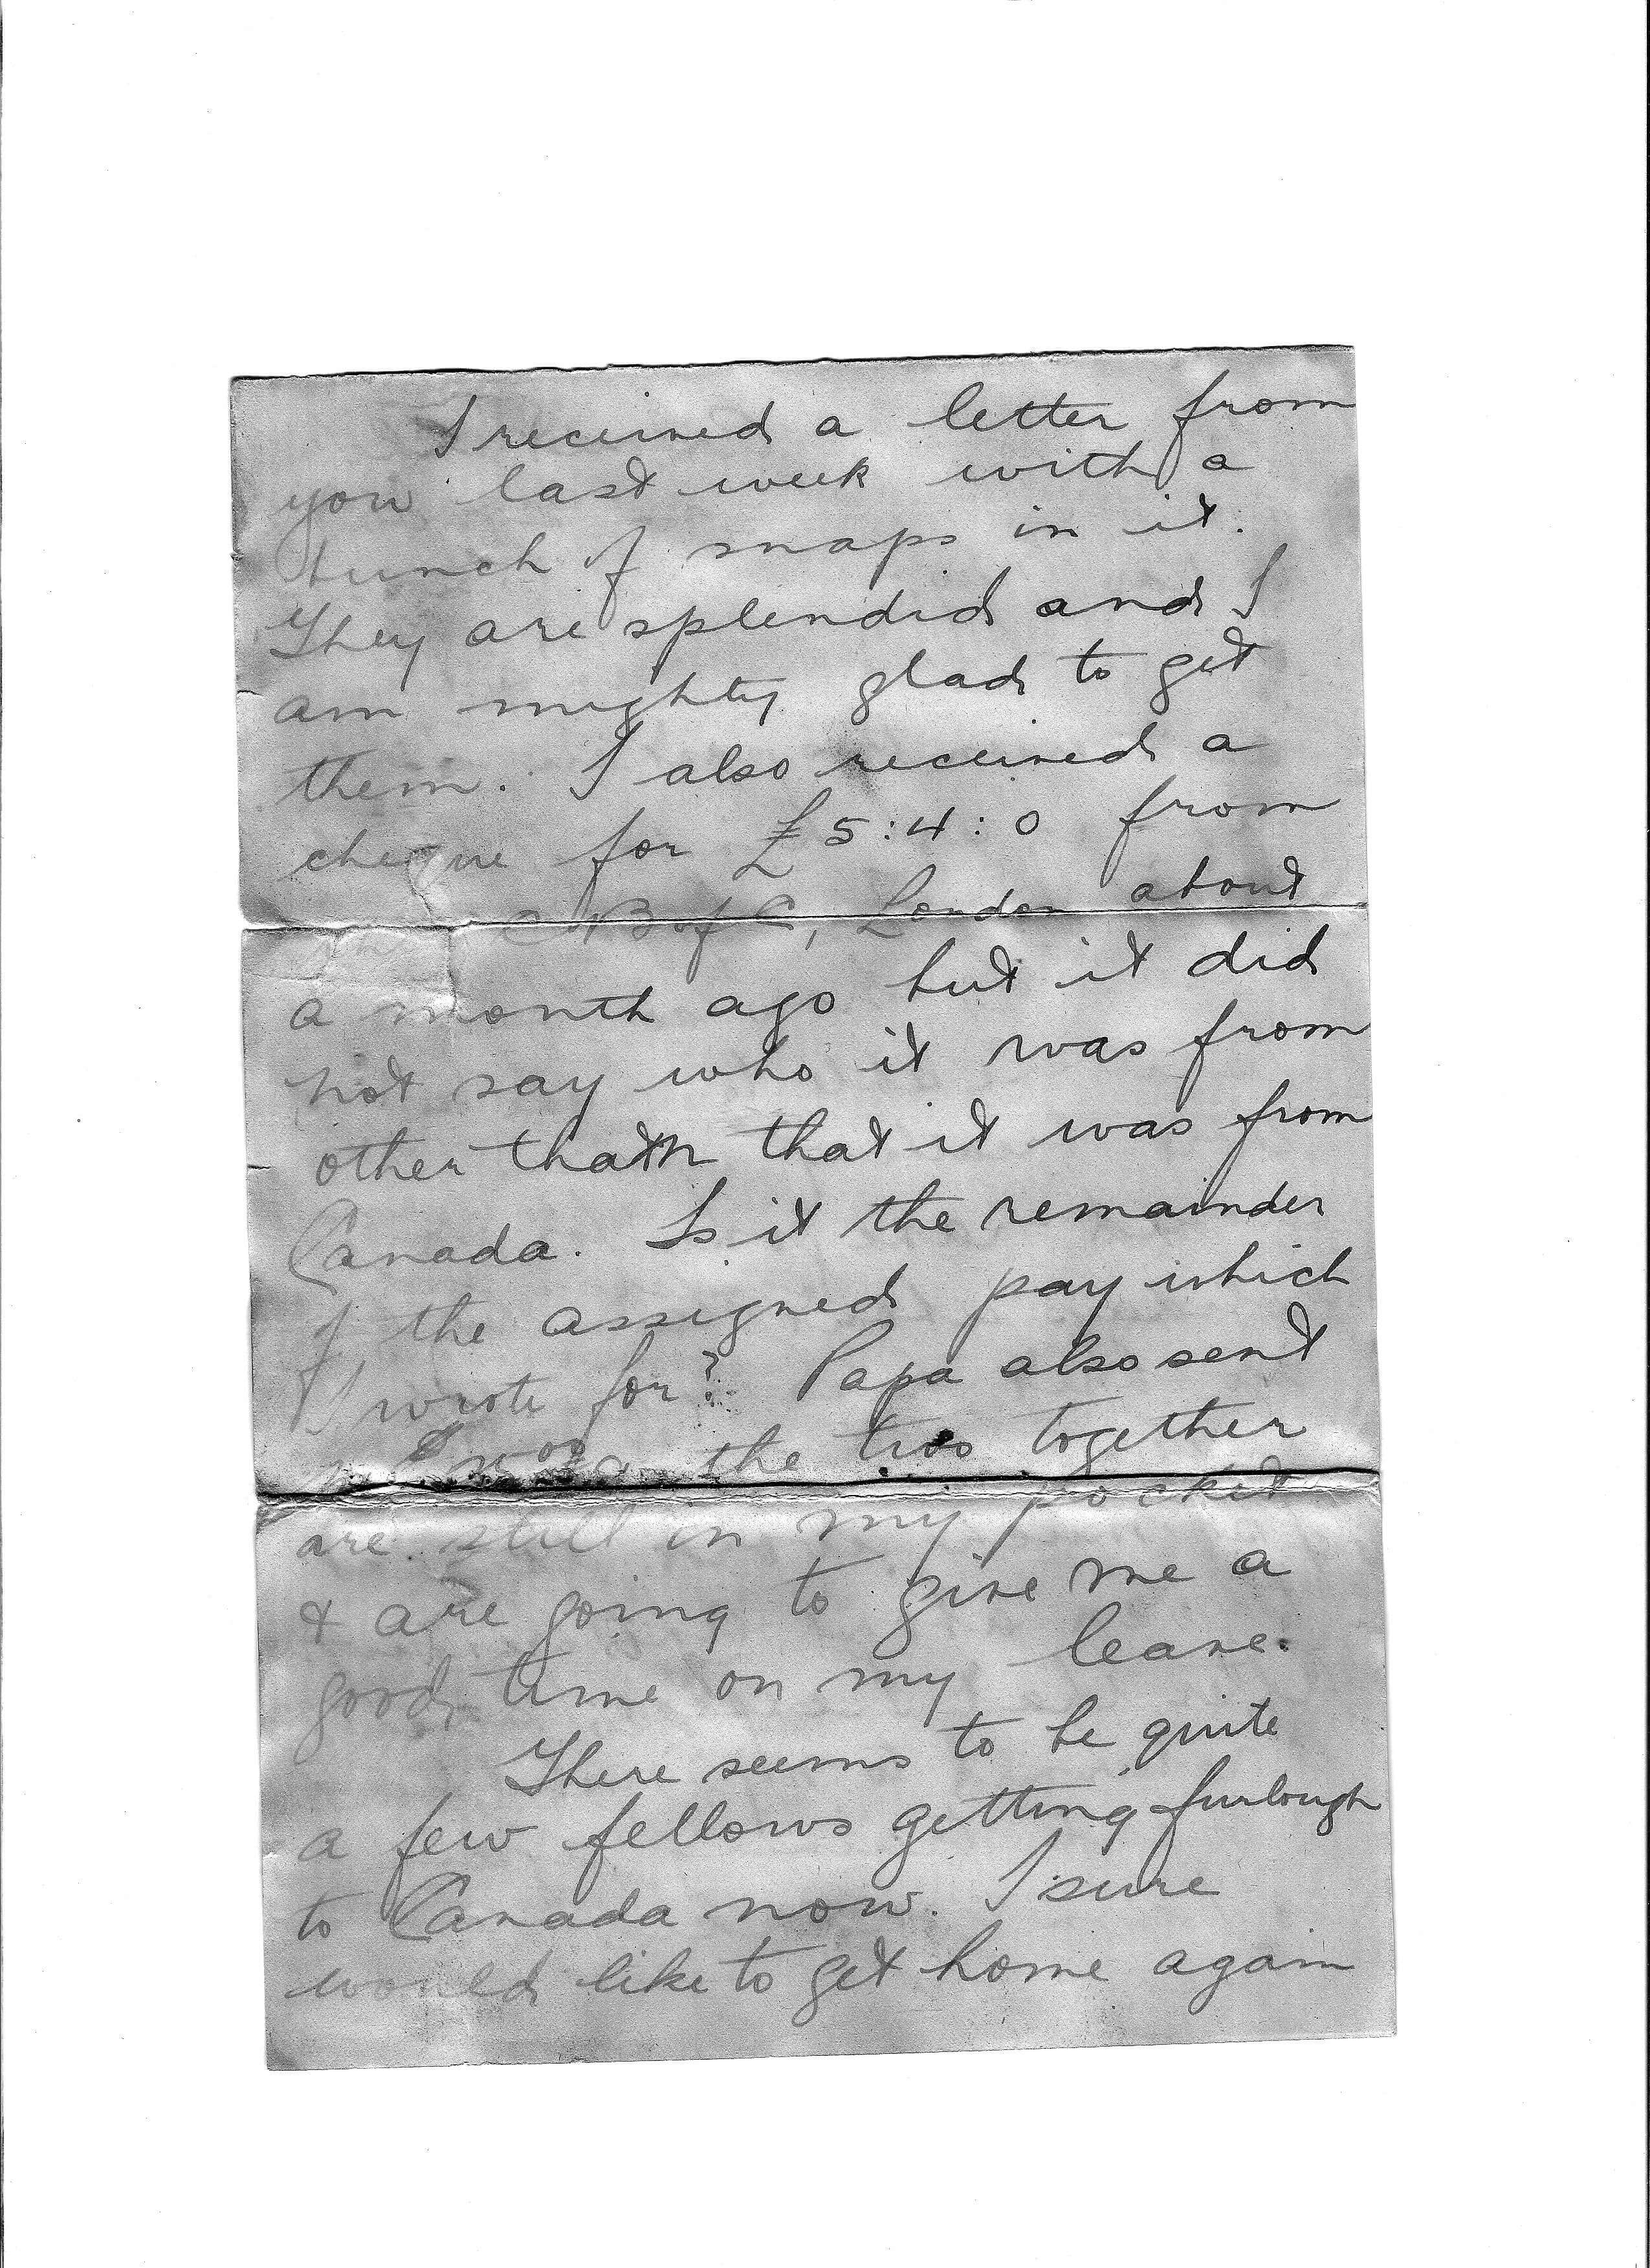 I received a letter from
you last week with a
bunch of snaps in it.
They are splendid and I
am mighty glad to get
them. I also received a
cheque for £5:4:0 from
the C B of C, London about
a month ago but it did
not say who it was from
other than that it was from
Canada. Is it the remainder
of the assigned pay which
I wrote for? Papa also sent
the two together
are still in my pocket
& are going to give me a
good time on my leave.
There seems to be quite
a few fellows getting furlough
to Canada now. I sure
would like to get home again